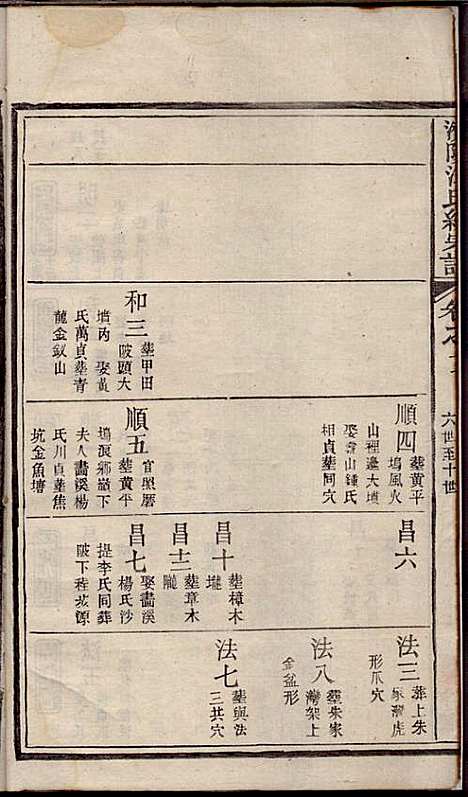 六世至十世
和三
葬甲田
陂頭大
墳內
娶黃
氏萬貞葬青
龍金釵山
順四
葬黃平
塢風火
山裡邊大墳
娶 山鍾氏
相貞葬同穴
順五
官照磨
葬黃平
塢浪鄉嶺下
夫人畫溪楊
氏川貞葬焦
坑金魚塘
昌六
昌十
葬樟木
壠
昌十三
葬章木
隴
昌七
娶畫溪
楊氏沙
提李氏同葬
陂下程 源
法三
葬上朱
家灣虎
形爪穴
法八
葬朱家
灣架上
金盆形
法七
葬與法
三共穴